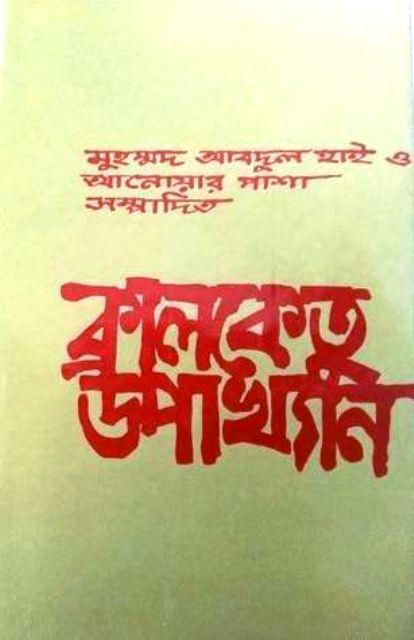 মুহম্মদ আবদুল হাই ও
আনোয়ার পাশা
সম্পাদিত
কালকেতু
উপাখ্যান